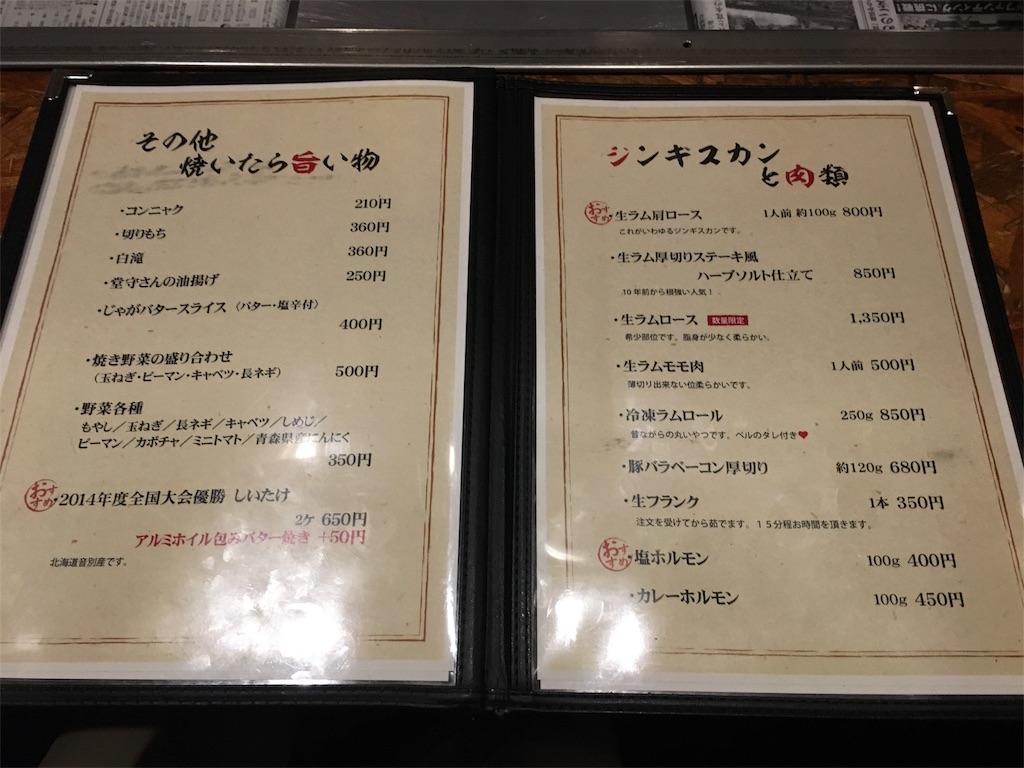 その他
焼いたら旨い物
・コンニャク 210円
・切りもち 360円
・白滝 360円
・堂守さんの油揚げ 250円
・じゃがバタースライス（バター・塩辛付）
400円
・焼き野菜の盛り合わせ
（玉ねぎ・ピーマン・キャベツ・長ネギ） 500円
・野菜各種
もやし／玉ねぎ／長ネギ／キャベツ／しめじ／
ピーマン／カボチャ／ミニトマト／青森県産にんにく
350円
おすすめ・2014年度全国大会優勝 しいたけ
2ケ 650円
アルミホイル包みバター焼き +50円
北海道音別産です。
ジンギスカン
と肉類
おすすめ 生ラム肩ロース 1人前 約100g 800円
これがいわゆるジンギスカンです。
・生ラム厚切りステーキ風
ハーブソルト仕立て 850円
10年前から根強い人気！
・生ラムロース 数量限定 1,350円
希少部位です。脂身が少なく柔らかい。
・生ラムモモ肉 1人前 500円
薄切り出来ない位柔らかいです。
・冷凍ラムロール 250g 850円
昔ながらの丸いやつです。ベルのタレ付き♥
・豚バラベーコン厚切り 約120g 680円
・生フランク 1本 350円
注文を受けてから茹でます。１５分程お時間を頂きます。
おすすめ・塩ホルモン 100g 400円
・カレーホルモン 100g 450円